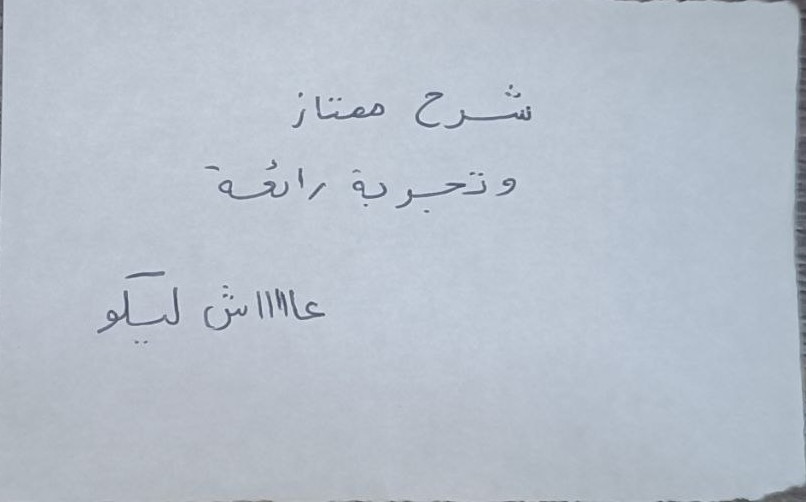 شرح ممتاز
وتجربة رائعة
عاااااش ليكو